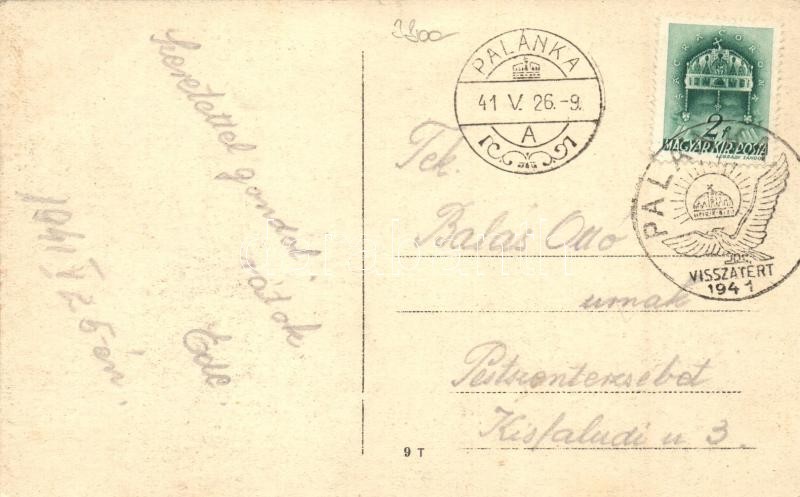 3300
Szeretettel gondol
rátok
Ede.
1941 V 25-én.
PALÁNKA
41 V. 26.-9.
A
SACRA CORONA
2f
MAGYAR KIR. POSTA
PALÁNKA
VISSZATÉRT
1941
Tek.
Balás Ottó
urnak
Pestszenterzsébet
Kisfaludi u 3.
9 T